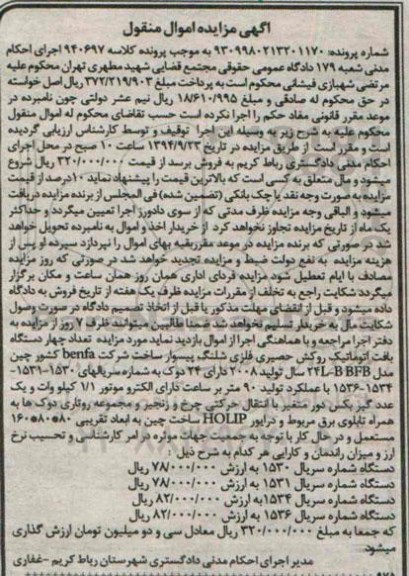 آگهی مزایده اموال منقول
شماره پرونده: ۹۳۰۹۹۸۰۲۱۳۲۰۱۱۷۰ به موجب پرونده کلاسه ۹۴۰۶۹۷ اجرای احکام
مدنی شعبه ۱۷۹ دادگاه عمومی حقوقی مجتمع قضایی شهید مطهری تهران محکوم علیه
مرتضی شهبازی فیشانی محکوم است به پرداخت مبلغ ۳۷۲/۲۱۹/۹۰۳ ریال اصل خواسته
در حق محکوم له صادقی و مبلغ ۱۸/۶۱۰/۹۹۵ ریال نیم عشر دولتی چون نامبرده در
موعد مقرر قانونی مفاد حکم را اجرا نکرده است حسب تقاضای محکوم له اموال منقول
محکوم علیه به شرح زیر به وسیله این اجرا توقیف و توسط کارشناس ارزیابی گردیده
است و مقرر است از طریق مزایده در تاریخ ۱۳۹۴/۹/۲۳ ساعت ۱۰ صبح در محل اجرای
احکام مدنی دادگستری رباط کریم به فروش برسد از قیمت ۳۲۰/۰۰۰/۰۰۰ ریال شروع
میشود و مال متعلق به کسی است که بالاترین قیمت را پیشنهاد نماید ۱۰درصد از قیمت
مزایده به صورت وجه نقد یا چک بانکی (تضمین شده) فی المجلس از برنده مزایده دریافت
میشود و الباقی وجه مزایده ظرف مدتی که از سوی دادورز اجرا تعیین میگردد و حداکثر
یک ماه از تاریخ مزایده تجاوز نخواهد کرد از خریدار اخذ و اموال به نامبرده تحویل خواهد
شد در صورتی که برنده مزایده در موعد مقرر بقیه بهای اموال را نپردازد سپرده او پس از
هزینه مزایده به نفع دولت ضبط و مزایده تجدید خواهد شد در صورتی که روز مزایده
مصادف با ایام تعطیل شود مزایده فردای اداری همان روز همان ساعت و مکان برگزار
میگردد شکایت راجع به تخلف از مقررات مزایده ظرف یک هفته از تاریخ فروش به دادگاه
داده میشود و قبل از انقضای مهلت مذکور یا قبل از اتخاذ تصمیم دادگاه در صورت وصول
شکایت مال به خریدار تسلیم نخواهد شد ضمنا طالبین میتوانند ظرف ۷ روز از مزایده به
دفتر اجرا مراجعه و با هماهنگی اجرا از اموال بازدید نماید مورد مزایده تعداد چهار دستگاه
بافت اتوماتیک روکش حصیری فلزی شلنگ پیسوار ساخت شرکت benfa کشور چین
مدل 24L-B BFB سال تولید ۲۰۰۸ دارای ۲۴ دوک به شماره سریالهای ۱۵۳۰-۱۵۳۱-
۱۵۳۴-۱۵۳۶ با عملکرد تولید ۹۰ متر بر ساعت دارای الکترو موتور ۱/۱ کیلو وات و یک
عدد گیر بکس دور متغیر با انتقال حرکتی چرخ و زنجیر و مجموعه روتاری دوک ها به
همراه تابلوی برق مربوط و درایور HOLIP ساخت چین به ابعاد تقریبی ۸۰*۸۰*۱۶۰
مستعمل و در حال کار با توجه به جمعیت جهات موثره در امر کارشناسی و تحسیب نرخ
ارز و میزان راندمان و کارایی هر کدام به شرح ذیل :
دستگاه شماره سریال ۱۵۳۰ به ارزش ۷۸/۰۰۰/۰۰۰ ریال
دستگاه شماره سریال ۱۵۳۱ به ارزش ۷۸/۰۰۰/۰۰۰ ریال
دستگاه شماره سریال ۱۵۳۴ به ارزش ۸۲/۰۰۰/۰۰۰ ریال
دستگاه شماره سریال ۱۵۳۶ به ارزش ۸۲/۰۰۰/۰۰۰ ریال
که جمعا به مبلغ ۳۲۰/۰۰۰/۰۰۰ ریال معادل سی و دو میلیون تومان ارزش گذاری
میشود
مدیر اجرای احکام مدنی دادگستری شهرستان رباط کریم -غفاری